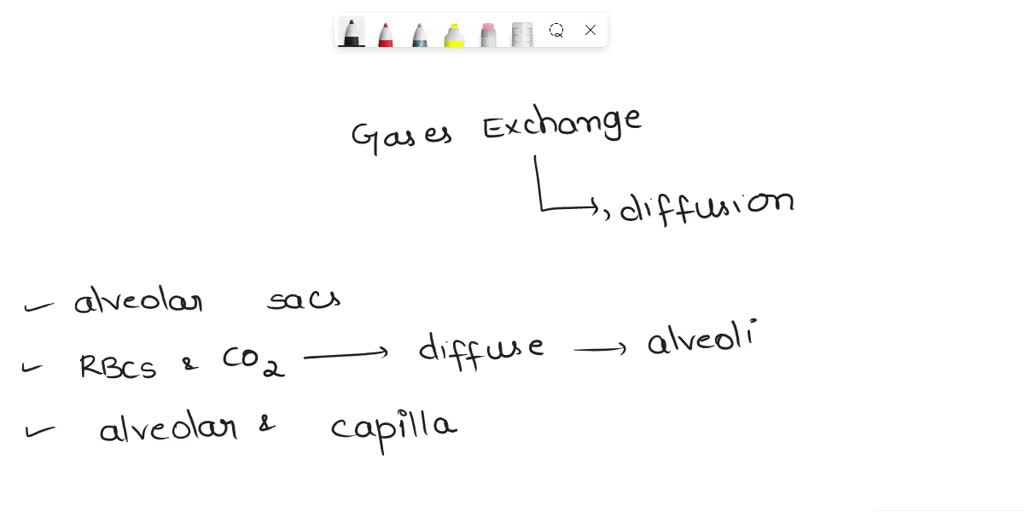 Gases Exchange
diffusion
alveolar sacs
RBCS & CO2 → diffuse → alveoli
alveolar & capilla